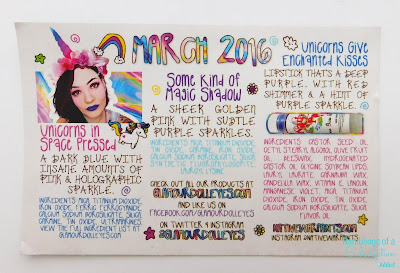 MARCH 2016
Unicorns in
Space Pressed
A DARK BLUE WITH
INSANE AMOUNTS OF
PINK & HOLOGRAPHIC
SPARKLE.
INGREDIENTS: MICA, TITANIUM DIOXIDE,
IRON OXIDE, FERRIC FERROCYANIDE,
CALCIUM SODIUM BOROSILICATE, SILICA,
CARMINE, TIN OXIDE, ULTRAMARINES.
VIEW THE FULL INGREDIENT LIST AT
GLAMOURDOLLEYES.COM
Some Kind of
Magic Shadow
A SHEER GOLDEN
PINK WITH SUBTLE
PURPLE SPARKLES.
INGREDIENTS: MICA, TITANIUM DIOXIDE,
TIN OXIDE, CARMINE, IRON OXIDE,
CALCIUM SODIUM BOROSILICATE, SILICA,
SYNTHETIC FLUORPHLOGOPITE,
LAUROYL LYSINE
CHECK OUT ALL OUR PRODUCTS AT
GLAMOURDOLLEYES.COM
AND LIKE US ON
FACEBOOK.COM/GLAMOURDOLLEYES
ON TWITTER & INSTAGRAM
@GLAMOURDOLLEYES
Unicorns Give
Enchanted Kisses
LIPSTICK THAT'S A DEEP
PURPLE, WITH RED
SHIMMER & A HINT OF
PURPLE SPARKLE.
INGREDIENTS: CASTOR SEED OIL,
CETYL STEARYL ALCOHOL, OLIVE FRUIT
OIL, BEESWAX, HYDROGENATED
CASTOR OIL, GLYCINE SOYBEAN LIPIDS,
LAURYL LAURATE, CARNAUBA WAX,
CANDELILLA WAX, VITAMIN E, LINOLIN,
MANGANESE VIOLET, MICA, TITANIUM
DIOXIDE, IRON OXIDE, TIN OXIDE,
CALCIUM SODIUM BOROSILICATE, SILICA,
FLAVOR OIL